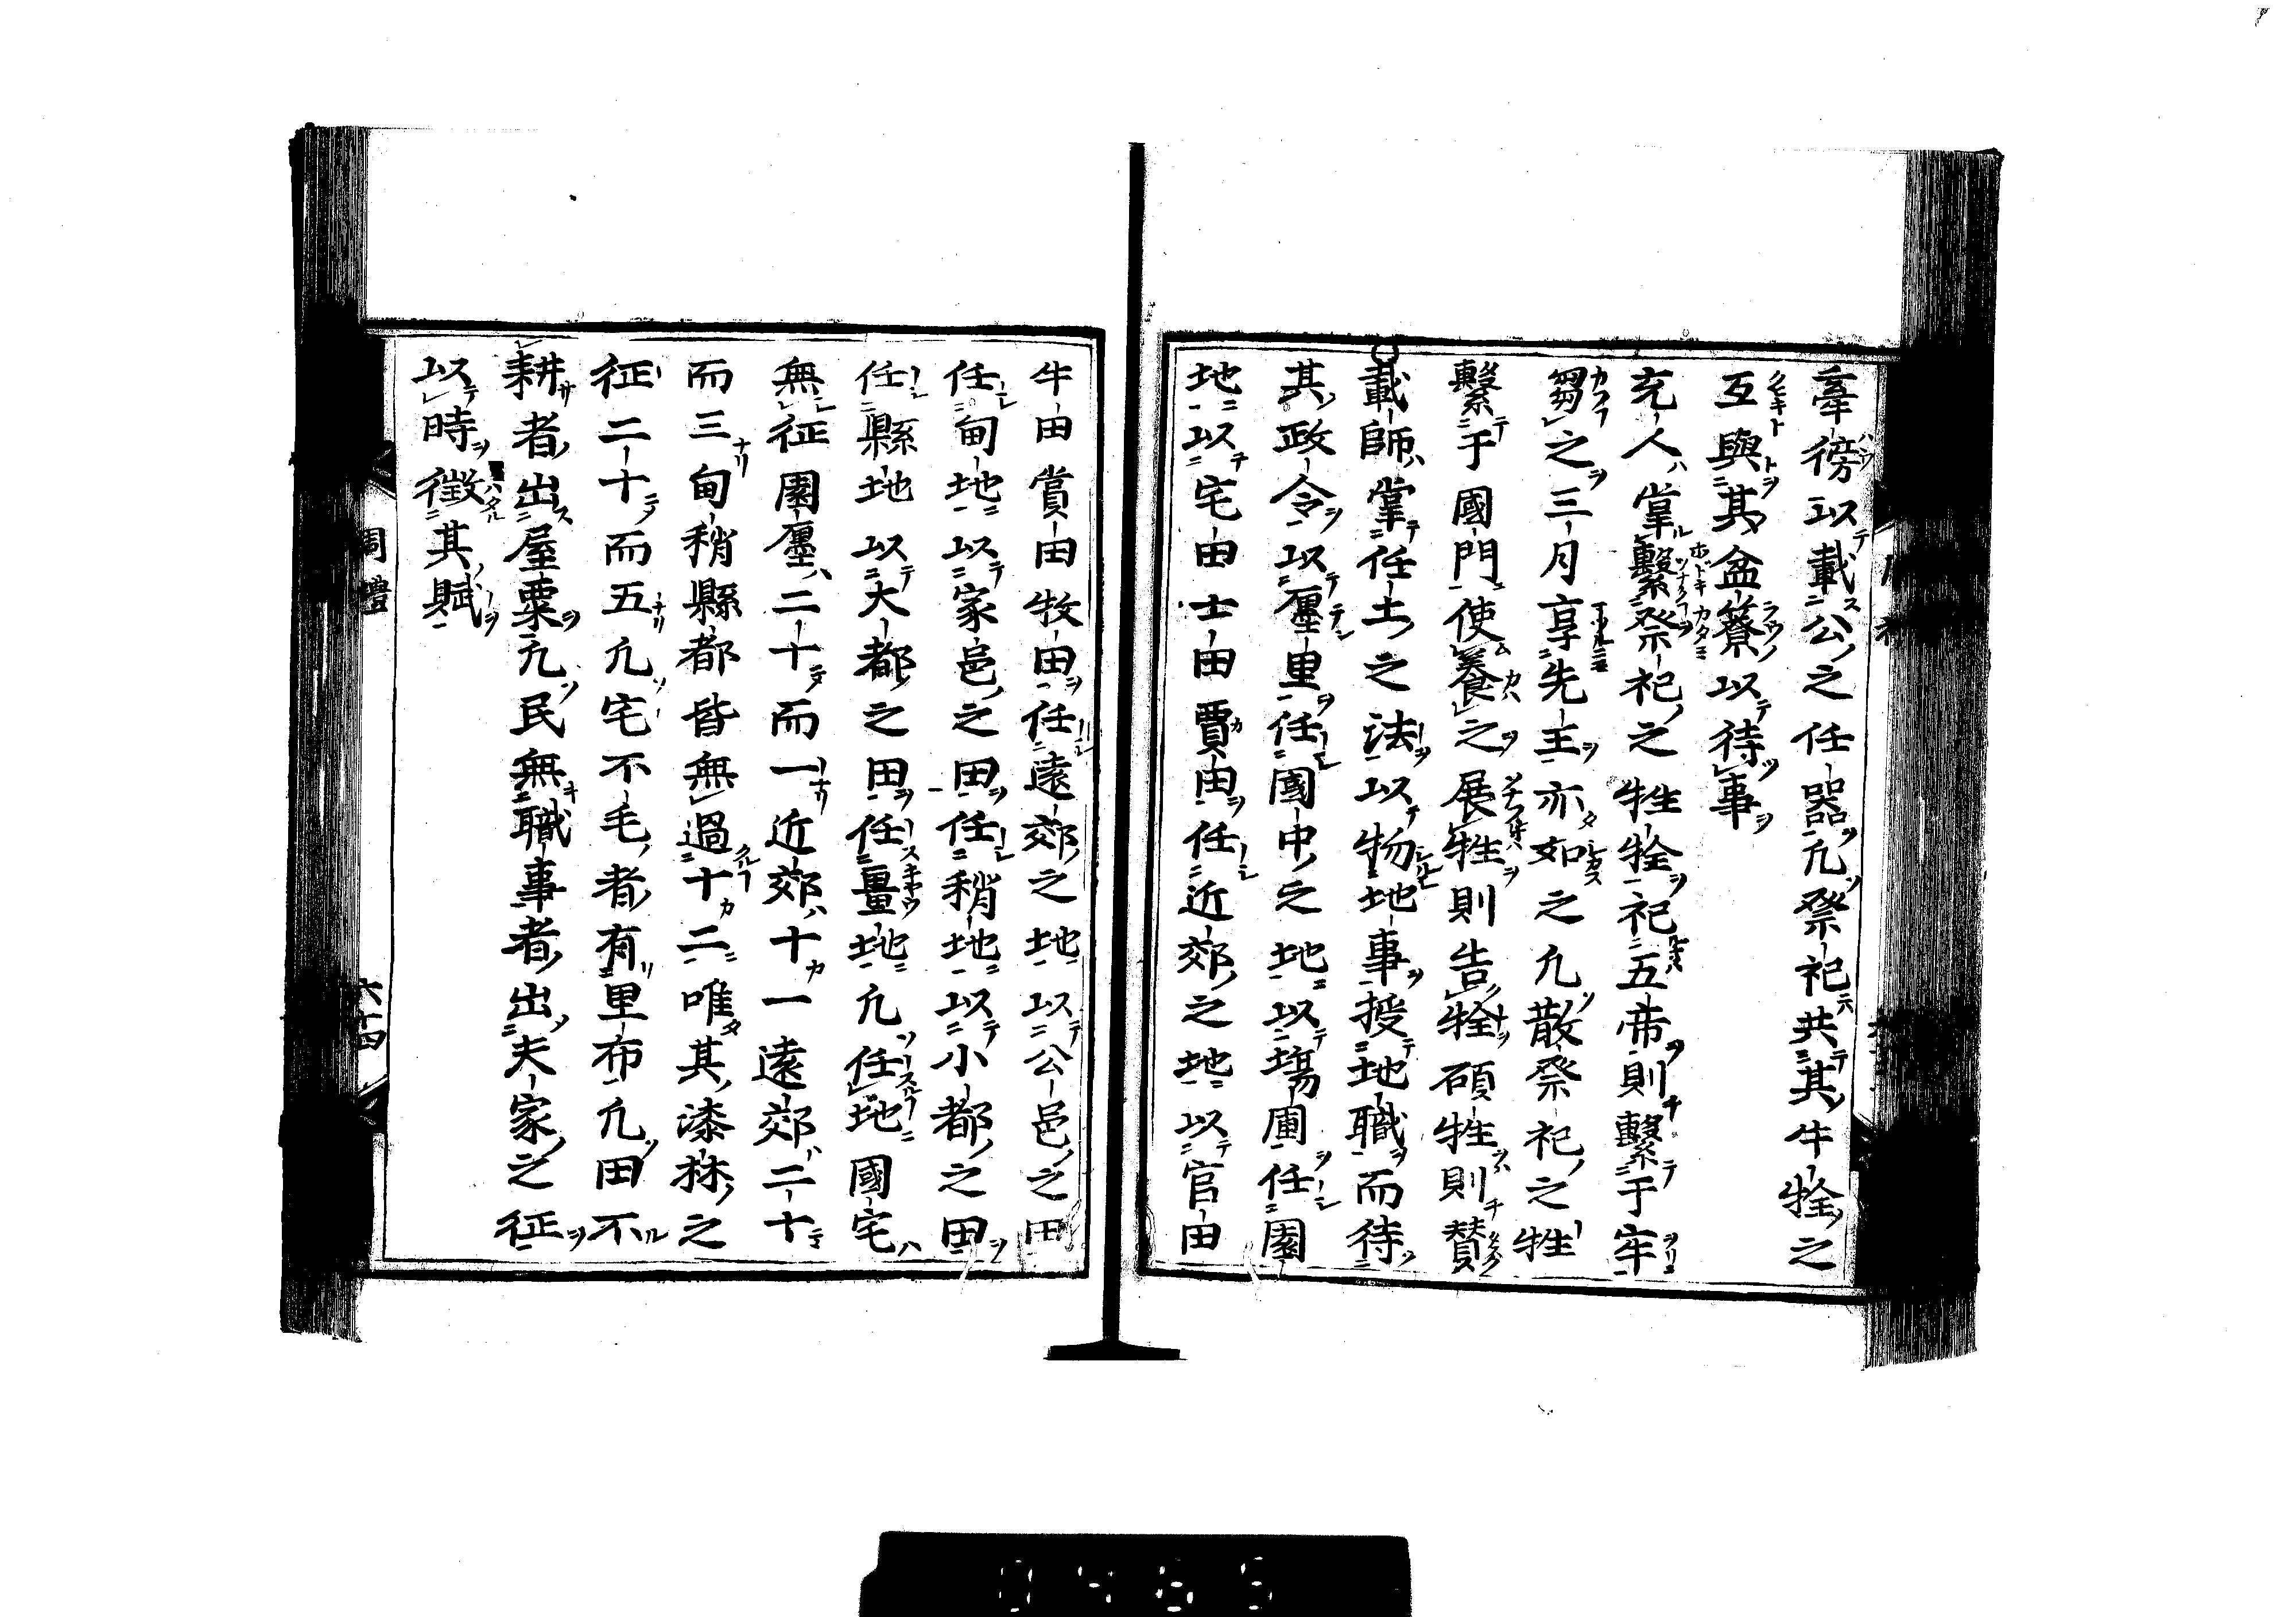 牽徬以載公之任器凢祭祀共其牛牷之
互與其盆簝以待事
充人掌繫祭祀之牲牷祀五帝則繫于牢
芻之三月享先王亦如之凢散祭祀之牲
繫于國門使養之展牲則告牷碩牲則贊
載師掌任土之法以物地事授地職而待
其政令以廛里任國中之地以塲圃任園
地以宅田士田賈田任近郊之地以官田
牛田賞田牧田任遠郊之地以公邑之田
任甸地以家邑之田任稍地以小都之田
任縣地以大都之田任畺地凢任地國宅
無征園廛二十而一近郊十一遠郊二十
而三甸稍縣都皆無過十二唯其漆林之
征二十而五凢宅不毛者有里布凢田不
耕者出屋粟凢民無職事者出夫家之征
以時徵其賦
周禮
六十四